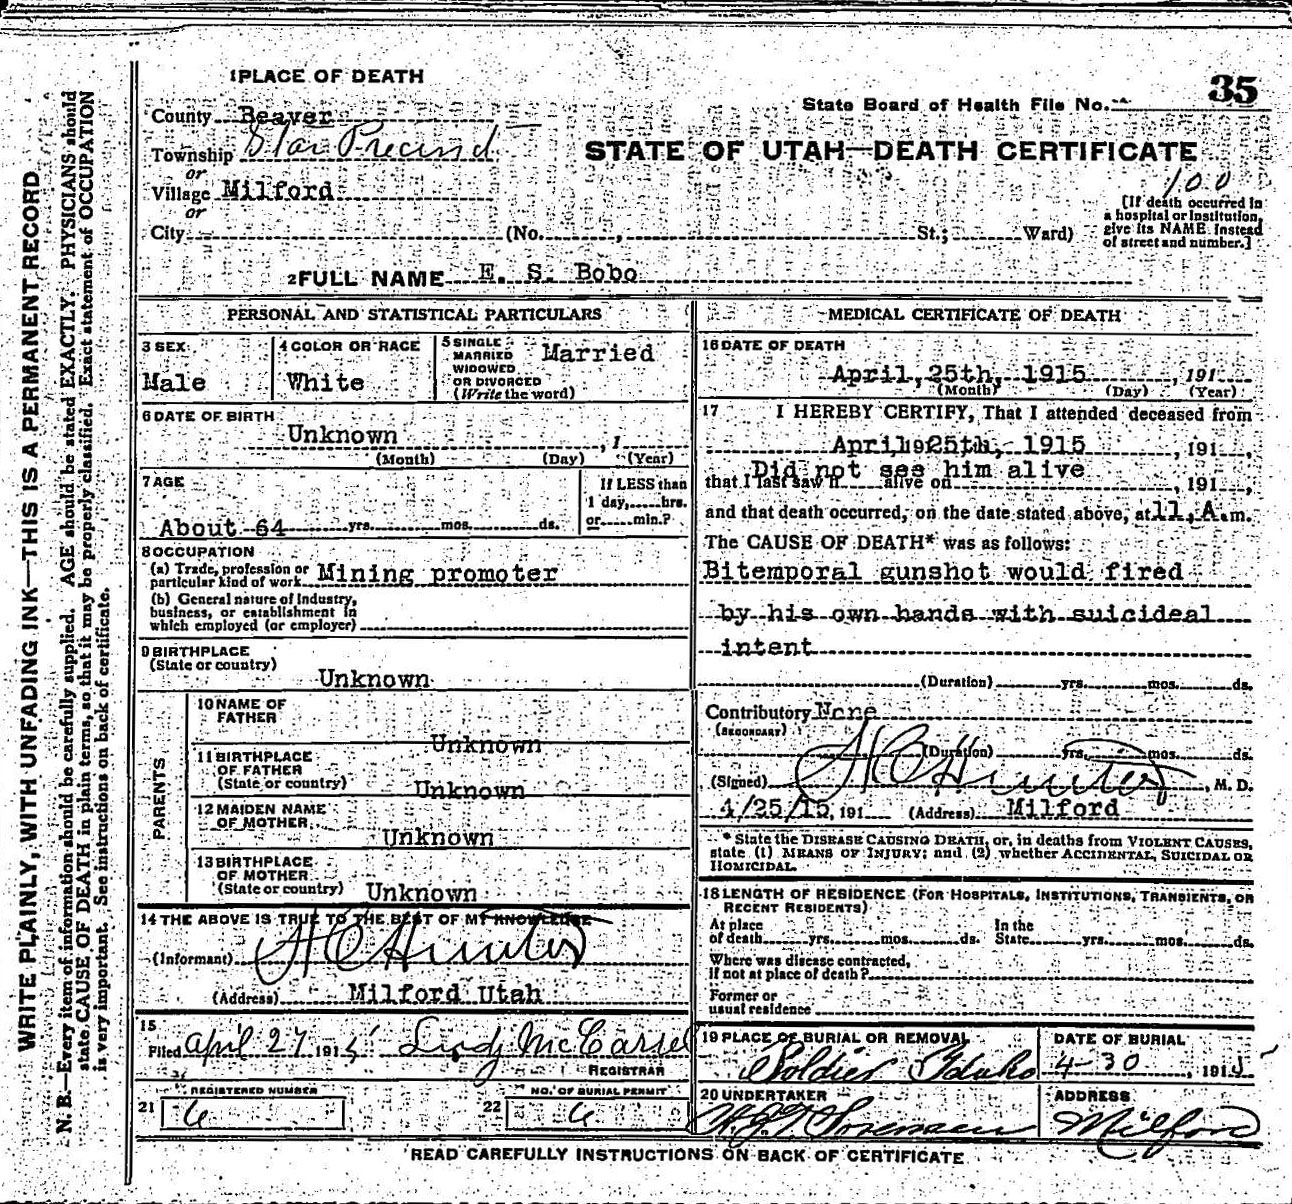 35
State Board of Health File No.
1 PLACE OF DEATH
County Beaver
Township Star Precinct
or
Village Milford
or
City (No. , St.; Ward)
STATE OF UTAH—DEATH CERTIFICATE
100
[If death occurred in
a hospital or institution,
give its NAME instead
of street and number.]
2 FULL NAME E. S. Bobo
PERSONAL AND STATISTICAL PARTICULARS
3 SEX
Male
4 COLOR OR RACE
White
5 SINGLE
MARRIED
WIDOWED
OR DIVORCED
(Write the word)
Married
6 DATE OF BIRTH
Unknown , 1
(Month) (Day) (Year)
7 AGE
About 64 yrs. mos. ds.
If LESS than
1 day, hrs.
or min.?
8 OCCUPATION
(a) Trade, profession or
particular kind of work Mining promoter
(b) General nature of industry,
business, or establishment in
which employed (or employer)
9 BIRTHPLACE
(State or country)
Unknown
PARENTS
10 NAME OF
FATHER
Unknown
11 BIRTHPLACE
OF FATHER
(State or country)
Unknown
12 MAIDEN NAME
OF MOTHER
Unknown
13 BIRTHPLACE
OF MOTHER
(State or country) Unknown
14 THE ABOVE IS TRUE TO THE BEST OF MY KNOWLEDGE
(Informant)
(Address) Milford Utah
15
Filed April 27 1915
REGISTRAR
REGISTERED NUMBER
21 6
NO. OF BURIAL PERMIT
22 6
MEDICAL CERTIFICATE OF DEATH
16 DATE OF DEATH
April, 25th, 1915 , 191
(Month) (Day) (Year)
17 I HEREBY CERTIFY, That I attended deceased from
April 25th, 1915 , 191 ,
Did not see him alive
that I last saw h alive on , 191 ,
and that death occurred, on the date stated above, at 11, A. m.
The CAUSE OF DEATH* was as follows:
Bitemporal gunshot would fired
by his own hands with suicideal
intent
(Duration) yrs. mos. ds.
Contributory None
(SECONDARY)
(Duration) yrs. mos. ds.
(Signed) , M. D.
4/25/15, 191 (Address) Milford
* State the DISEASE CAUSING DEATH, or, in deaths from VIOLENT CAUSES,
state (1) MEANS OF INJURY; and (2) whether ACCIDENTAL, SUICIDAL OR
HOMICIDAL.
18 LENGTH OF RESIDENCE (FOR HOSPITALS, INSTITUTIONS, TRANSIENTS, OR
RECENT RESIDENTS)
At place
of death yrs. mos. ds.
In the
State yrs. mos. ds.
Where was disease contracted,
if not at place of death?
Former or
usual residence
19 PLACE OF BURIAL OR REMOVAL
Soldier Idaho
DATE OF BURIAL
4-30, 1915
20 UNDERTAKER
ADDRESS
Milford
READ CAREFULLY INSTRUCTIONS ON BACK OF CERTIFICATE
WRITE PLAINLY, WITH UNFADING INK—THIS IS A PERMANENT RECORD
N. B.—Every item of information should be carefully supplied. AGE should be stated EXACTLY. PHYSICIANS should
state CAUSE OF DEATH in plain terms, so that it may be properly classified. Exact statement of OCCUPATION
is very important. See instructions on back of certificate.